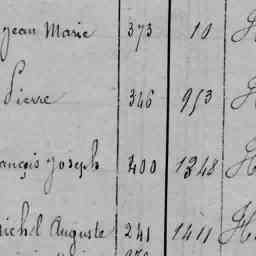 Jean Marie 373 10 H
Pierre 346 953 H
ançois Joseph 400 1348 H
ichel Auguste 241 1411 H